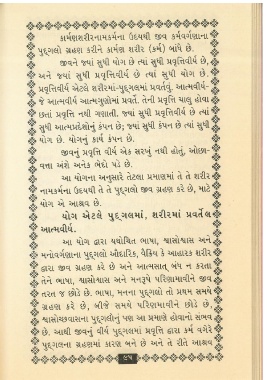 કાર્મણશરીરનામકર્મના ઉદયથી જીવ કર્મવર્ગણાના
પુદ્ગલો ગ્રહણ કરીને કાર્મણ શરીર (કર્મ) બાંધે છે.
જીવને જ્યાં સુધી યોગ છે ત્યાં સુધી પ્રવૃત્તિવીર્ય છે,
અને જ્યાં સુધી પ્રવૃત્તિવીર્ય છે ત્યાં સુધી યોગ છે.
પ્રવૃત્તિવીર્ય એટલે શરીરમાં-પુદ્ગલમાં પ્રવર્તવું. આત્મવીર્ય-
જે આત્મવીર્ય આત્મગુણોમાં પ્રવર્તે. તેની પ્રવૃત્તિ ચાલુ હોવા
છતાં પ્રવૃત્તિ નથી ગણાતી. જ્યાં સુધી પ્રવૃત્તિવીર્ય છે ત્યાં
સુધી આત્મપ્રદેશોનું કંપન છે; જ્યાં સુધી કંપન છે ત્યાં સુધી
યોગ છે. યોગનું કાર્ય કંપન છે.
જીવનું પ્રવૃત્તિ વીર્ય એક સરખું નથી હોતું, ઓછા-
વત્તા અંશે અનેક ભેદો પડે છે.
આ યોગના અનુસારે તેટલા પ્રમાણમાં તે તે શરીર
નામકર્મના ઉદયથી તે તે પુદ્ગલો જીવ ગ્રહણ કરે છે, માટે
યોગ એ આશ્રવ છે.
યોગ એટલે પુદ્ગલમાં, શરીરમાં પ્રવર્તેલ
આત્મવીર્ય.
આ યોગ દ્વારા યથોચિત ભાષા, શ્વાસોશ્વાસ અને
મનોવર્ગણાના પુદ્ગલો ઔદારિક, વૈક્રિય કે આહારક શરીર
દ્વારા જીવ ગ્રહણ કરે છે અને આત્મસાત્ બંધ ન કરતા
તેને ભાષા, શ્વાસોશ્વાસ અને મનરૂપે પરિણમાવીને જીવ
તરત જ છોડે છે. ભાષા, મનના પુદ્ગલો તો પ્રથમ સમયે
ગ્રહણ કરે છે, બીજે સમયે પરિણમાવીને છોડે છે,
શ્વાસોચ્છવાસના પુદ્ગલોનું પણ આ પ્રમાણે હોવાનો સંભવ
છે. આથી જીવનું વીર્ય પુદ્ગલમાં પ્રવૃત્તિ દ્વારા કર્મ વગેરે
પુદ્ગલના ગ્રહણમાં કારણ બને છે અને તે રીતે આશ્રવ